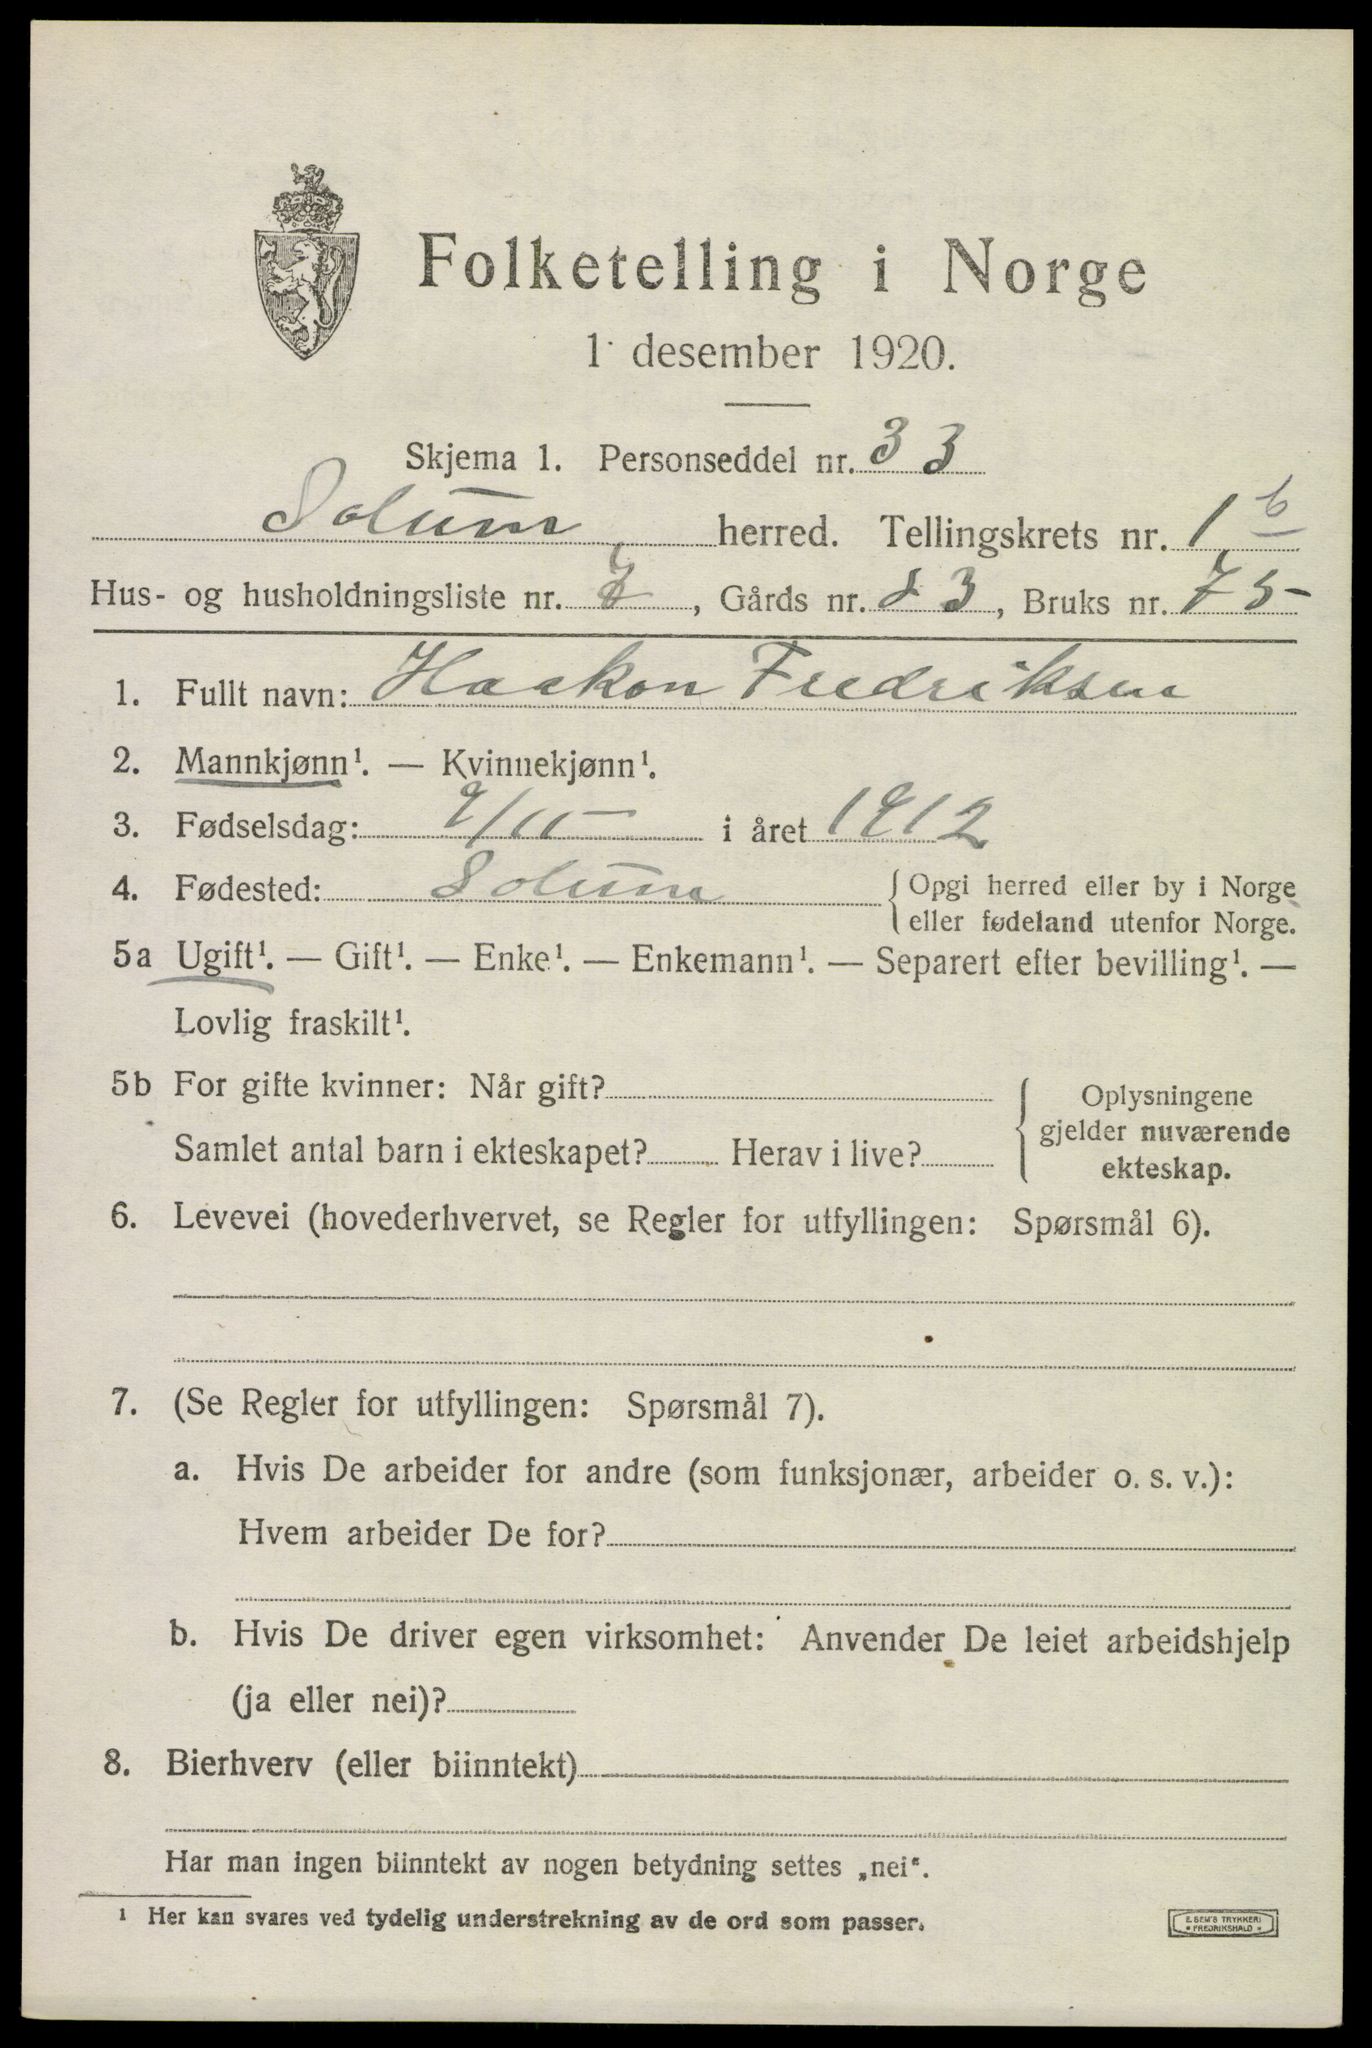 Folketelling i Norge
1 desember 1920.
Skjema 1. Personseddel nr. 33
Solum herred. Tellingskrets nr. 1 b
Hus- og husholdningsliste nr. 7, Gårds nr. 83, Bruks nr. 75
1. Fullt navn: Haakon Fredriksen
2. Mannkjønn¹. — Kvinnekjønn¹.
3. Fødselsdag: 9/11 i året 1912
4. Fødested: Solum { Opgi herred eller by i Norge
eller fødeland utenfor Norge.
5a Ugift¹. — Gift¹. — Enke¹. — Enkemann¹. — Separert efter bevilling¹. —
Lovlig fraskilt¹.
5b For gifte kvinner: Når gift? { Oplysningene
gjelder nuværende
Samlet antal barn i ekteskapet? Herav i live? ekteskap.
6. Levevei (hovederhvervet, se Regler for utfyllingen: Spørsmål 6).
7. (Se Regler for utfyllingen: Spørsmål 7).
a. Hvis De arbeider for andre (som funksjonær, arbeider o. s. v.):
Hvem arbeider De for?
b. Hvis De driver egen virksomhet: Anvender De leiet arbeidshjelp
(ja eller nei)?
8. Bierhverv (eller biinntekt)
Har man ingen biinntekt av nogen betydning settes „nei".
¹ Her kan svares ved tydelig understrekning av de ord som passer.
E. SEM'S TRYKKERI
* FREDRIKSHALD *